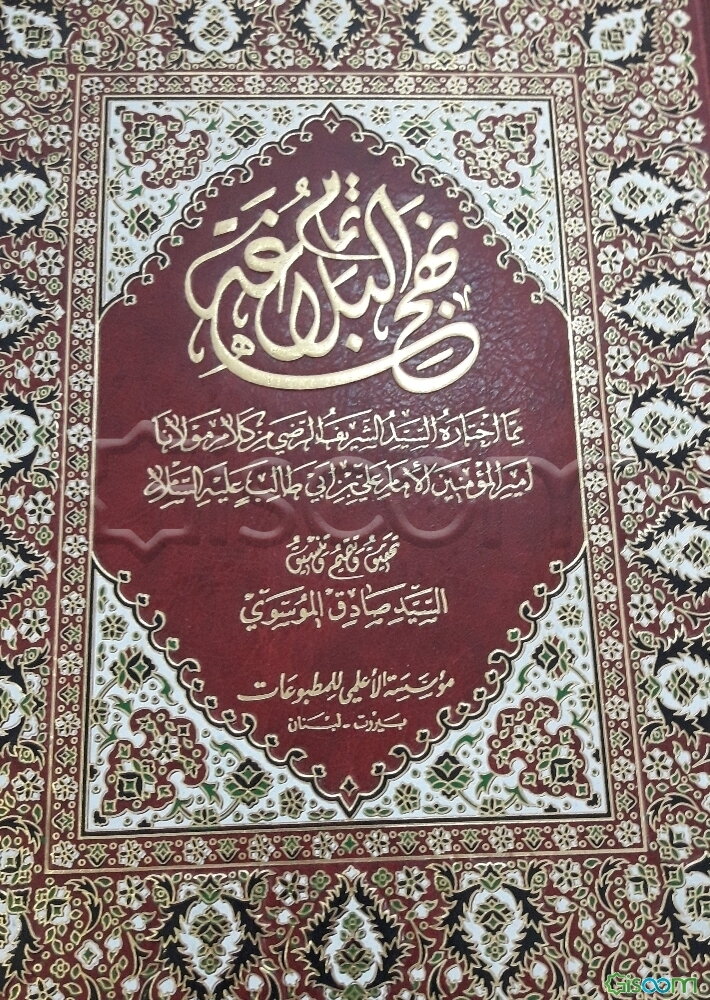 تمام نهج البلاغة
مما اختاره السيد الشريف الرضي من كلام مولانا
أمير المؤمنين الإمام علي بن أبي طالب عليه السلام
تحقيق وتتميم وتنسيق
السيد صادق الموسوي
مؤسسة الأعلمي للمطبوعات
بيروت - لبنان
Gisoom